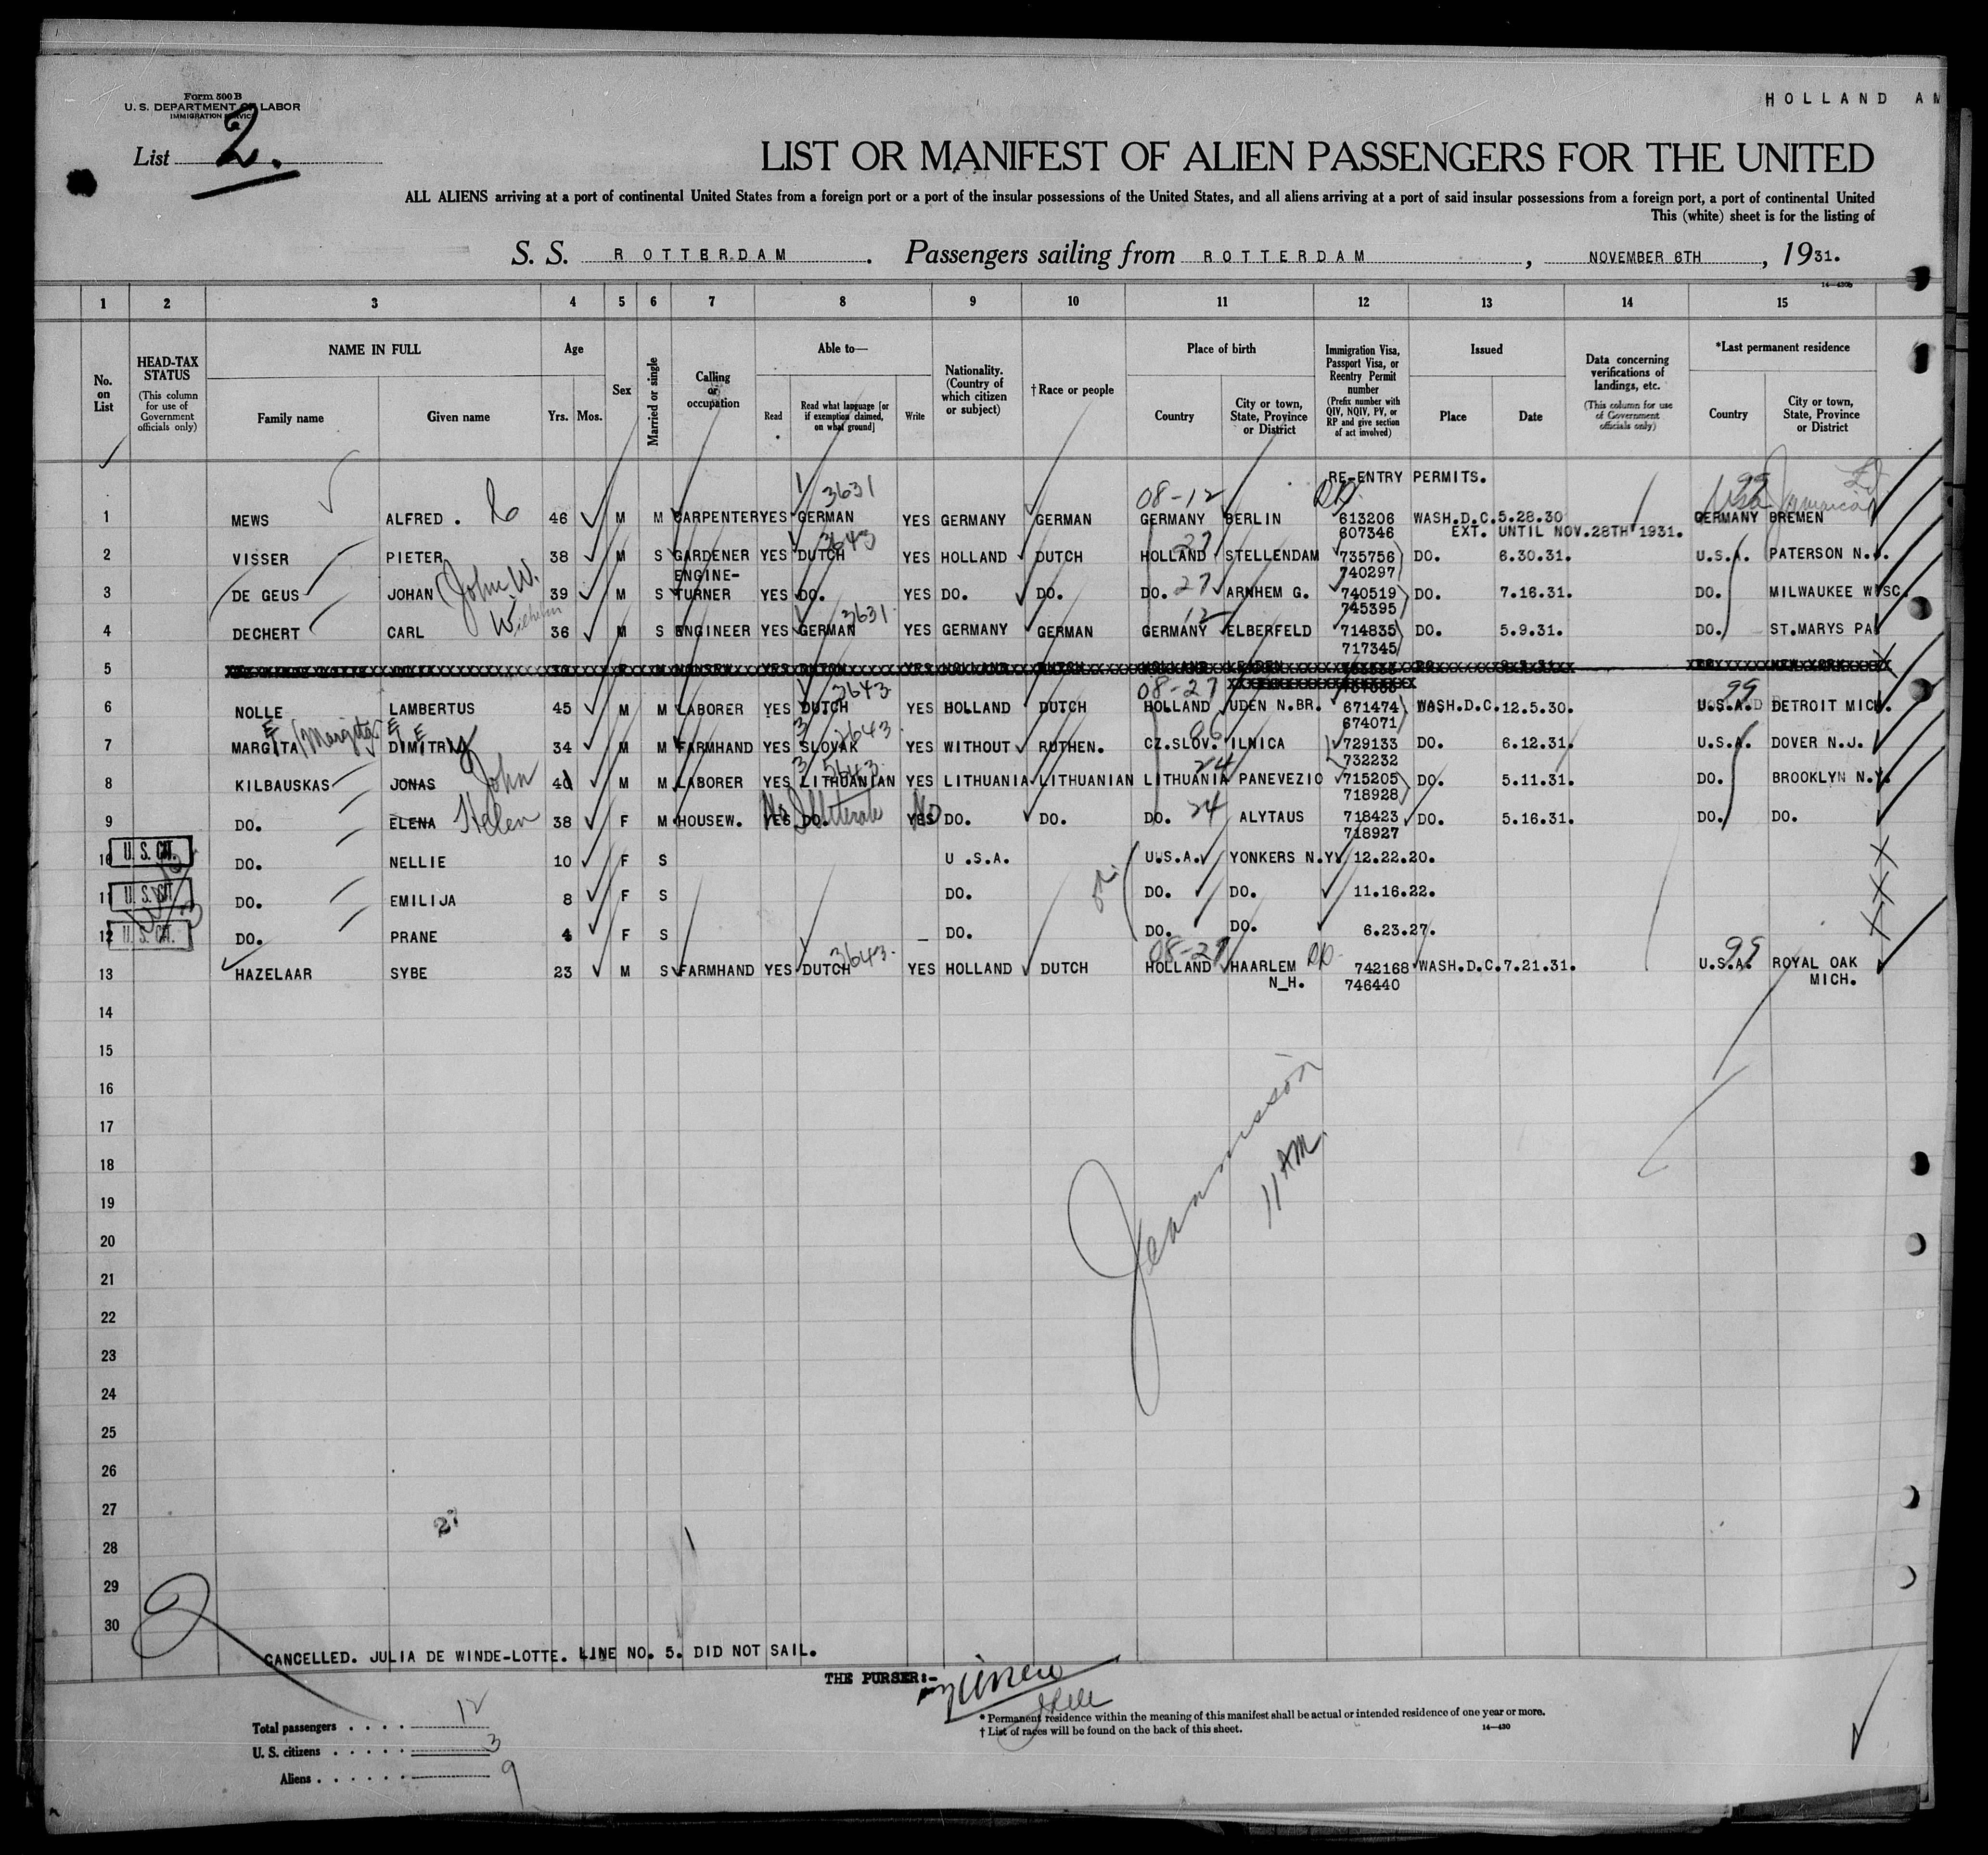 Form 500 B
U. S. DEPARTMENT OF LABOR
IMMIGRATION SERVICE
HOLLAND AM
List 2.
LIST OR MANIFEST OF ALIEN PASSENGERS FOR THE UNITED
ALL ALIENS arriving at a port of continental United States from a foreign port or a port of the insular possessions of the United States, and all aliens arriving at a port of said insular possessions from a foreign port, a port of continental United
This (white) sheet is for the listing of
S. S. ROTTERDAM. Passengers sailing from ROTTERDAM, NOVEMBER 6TH, 1931.
14—430b
1 2 3 4 5 6 7 8 9 10 11 12 13 14 15
No. on List
HEAD-TAX STATUS (This column for use of Government officials only)
NAME IN FULL
Family name Given name
Age
Yrs. Mos.
Sex
Married or single
Calling or occupation
Able to—
Read Read what language [or if exemption claimed, on what ground] Write
Nationality. (Country of which citizen or subject)
† Race or people
Place of birth
Country City or town, State, Province or District
Immigration Visa, Passport Visa, or Reentry Permit number (Prefix number with QIV, NQIV, PV, or RP and give section of act involved)
Issued
Place Date
Data concerning verifications of landings, etc. (This column for use of Government officials only)
*Last permanent residence
Country City or town, State, Province or District
RE-ENTRY PERMITS.
3631 08-12 99
USA Jamaica
1 MEWS ALFRED . 46 M M CARPENTER YES GERMAN YES GERMANY GERMAN GERMANY BERLIN 613206 WASH.D.C. 5.28.30 GERMANY BREMEN
607346 EXT. UNTIL NOV.28TH 1931.
3643 27
2 VISSER PIETER 38 M S GARDENER YES DUTCH YES HOLLAND DUTCH HOLLAND STELLENDAM 735756 DO. 6.30.31. U.S.A. PATERSON N.J.
740297
ENGINE-
3 DE GEUS JOHAN (John W. 39 M S TURNER YES DO. YES DO. DO. DO. 27 ARNHEM G. 740519 DO. 7.16.31. DO. MILWAUKEE WISC.
745395
Wilhelm 3631 12
4 DECHERT CARL 36 M S ENGINEER YES GERMAN YES GERMANY GERMAN GERMANY ELBERFELD 714835 DO. 5.9.31. DO. ST.MARYS PA.
717345
5
3643 08-27 99
6 NOLLE LAMBERTUS 45 M M LABORER YES DUTCH YES HOLLAND DUTCH HOLLAND UDEN N.BR. 671474 WASH.D.C. 12.5.30. U.S.A. DETROIT MICH.
674071
3643
7 MARGITA (Margita) DIMITRI 34 M M FARMHAND YES SLOVAK YES WITHOUT RUTHEN. CZ.SLOV. ILNICA 729133 DO. 6.12.31. U.S.A. DOVER N.J.
732232
24
8 KILBAUSKAS JONAS John 40 M M LABORER YES LITHUANIAN YES LITHUANIA LITHUANIAN LITHUANIA PANEVEZIO 715205 DO. 5.11.31. DO. BROOKLYN N.Y.
718928
9 DO. ELENA Helen 38 F M HOUSEW. YES No DO. Illiterate YES No DO. DO. DO. 24 ALYTAUS 718423 DO. 5.16.31. DO. DO.
718927
10 U. S. CIT. DO. NELLIE 10 F S U .S.A. U.S.A. YONKERS N.Y. 12.22.20.
11 U. S. CIT. DO. EMILIJA 8 F S DO. DO. DO. 11.16.22.
12 U. S. CIT. DO. PRANE 4 F S DO. DO. DO. 6.23.27.
3643. 08-27 99
13 HAZELAAR SYBE 23 M S FARMHAND YES DUTCH YES HOLLAND DUTCH HOLLAND HAARLEM 742168 WASH.D.C. 7.21.31. U.S.A. ROYAL OAK
N_H. 746440 MICH.
14
15
16
17
18
19
20
21
22
23
24
25
26
27
28
29
30
11 AM.
CANCELLED. JULIA DE WINDE-LOTTE. LINE NO. 5. DID NOT SAIL.
THE PURSER:-
Total passengers . . . . 12
U. S. citizens . . . . . 3
Aliens . . . . . . 9
* Permanent residence within the meaning of this manifest shall be actual or intended residence of one year or more.
† List of races will be found on the back of this sheet.
14—430